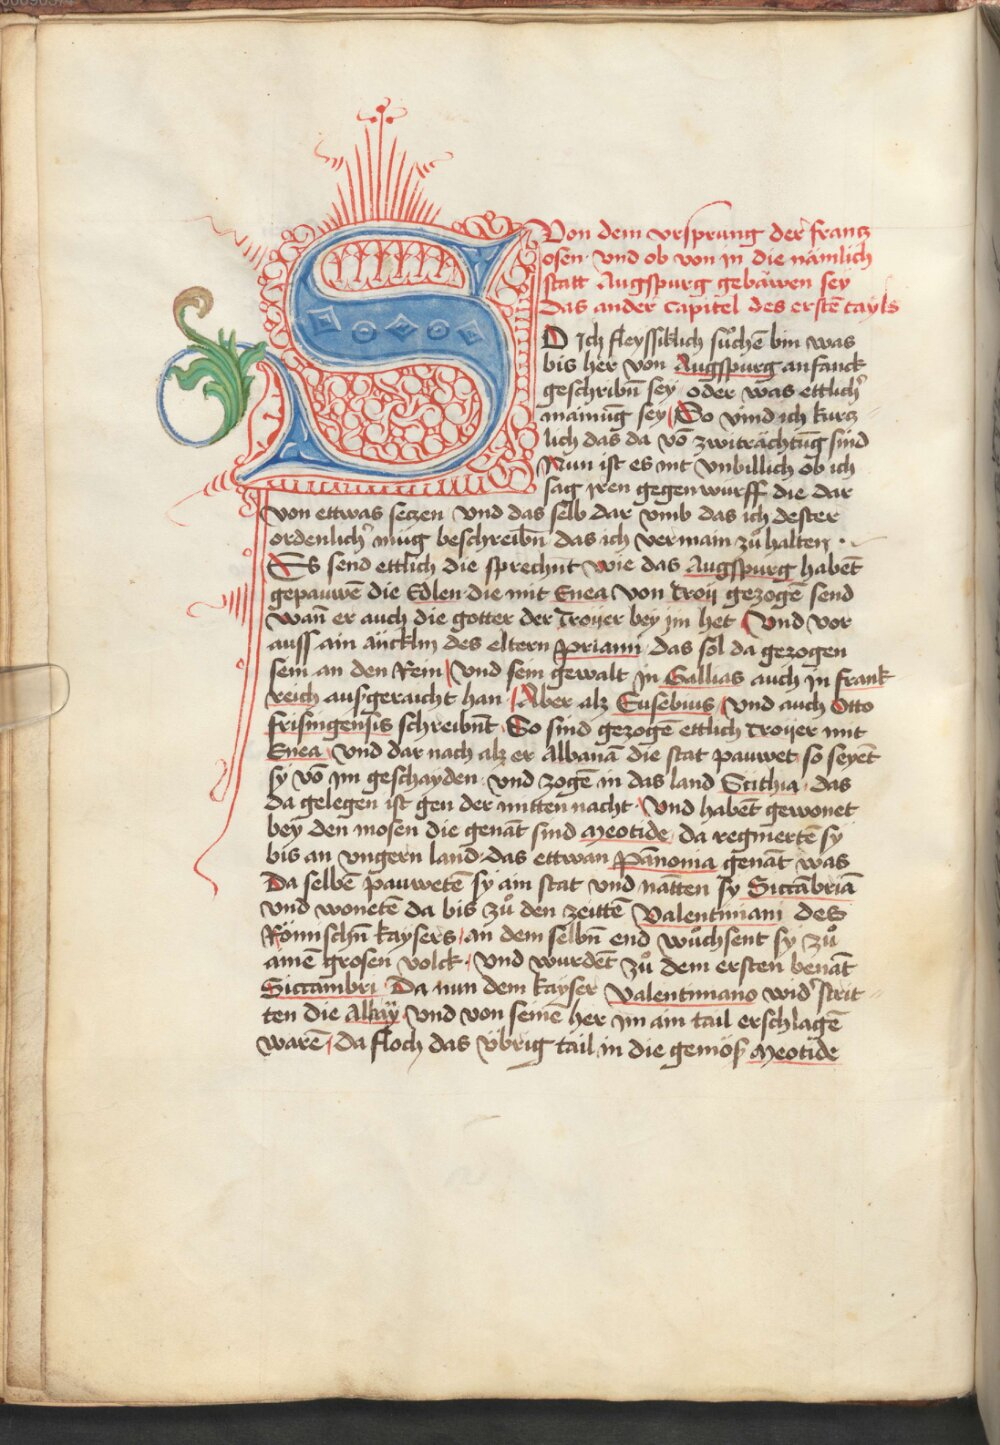 Von dem vrsprung der frantz
osen vnd ob von in die nämlich
statt Augspurg gebäwen sey
Das ander capitel des erstē tayls
SO Ich fleyssiklich sůchē bin was
bis her von Augspurg anfanck
geschribn̄ sey oder was ettlich͛
mainūg sey So vind ich kurtz
lich das da vō zwiträchtūg sind
Nun ist es nit vnbillich ob ich
sag iren gegenwurff die dar
von ettwas seczen vnd das selb dar vmb das ich dester
ordenlich͛ müg beschreibn̄ das ich vermain zů halten
Es send ettlich die sprechnt wie das Augspurg habēt
gepauwē die Edlen die mit Enea von troij gezogē send
wan̄ er auch die gotter der troijer bey im het Vnd vor
auss ain äncklin des eltern priami das sol da gezogen
sein an den Rein vnd sein gewalt in Gallias auch in frank
reich ausgeraicht han Aber alz Eusebius vnd auch Otto
frisingensis schreibnt̄ So sind gezogē ettlich troijer mit
Enea vnd dar nach alz er Albanā die stat pauwet so seyēt
sy vō im geschayden vnd zogē in das land Scithia das
da gelegen ist gen der mitten nacht Vnd habēt gewonet
bey den mosen die genāt sind meotide da regniertē sy
bis an vngern land das ettwan pānonia genāt was
Da selbē pauwetē sy ain stat vnd nāttēn sy Siccābriā
vnd wonetē da bis zů den zeittē Valentiniani des
Römischn̄ kaysers an dem selbn̄ end wůchsent sy zů
ainē grosen volck vnd wurdēt zů dem ersten benāt
Siccambri Da nun dem kayser Valentiniano wid͛ strit
ten die Alaÿ vnd von seinē her im ain tail erschlagē
warē da floch das übrig tail in die gemös meotide